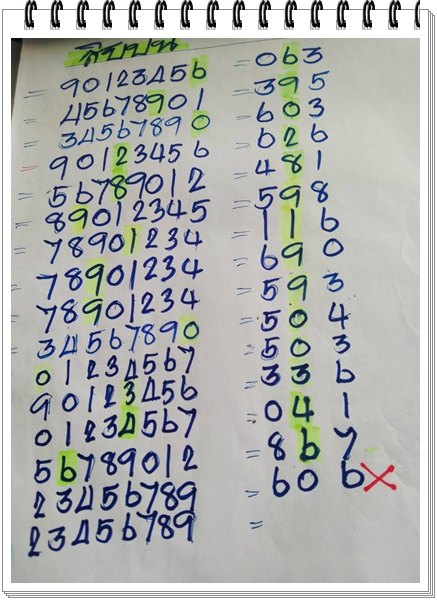 สิบบน
= 90123456 = 063
= 45678901 = 395
= 34567890 = 603
= 90123456 = 626
= 56789012 = 481
= 89012345 = 598
= 78901234 = 116
= 78901234 = 690
= 78901234 = 593
= 34567890 = 504
01234567 = 503
90123456 = 336
01234567 = 041
56789012 = 867
23456789 = 606 X
23456789 =